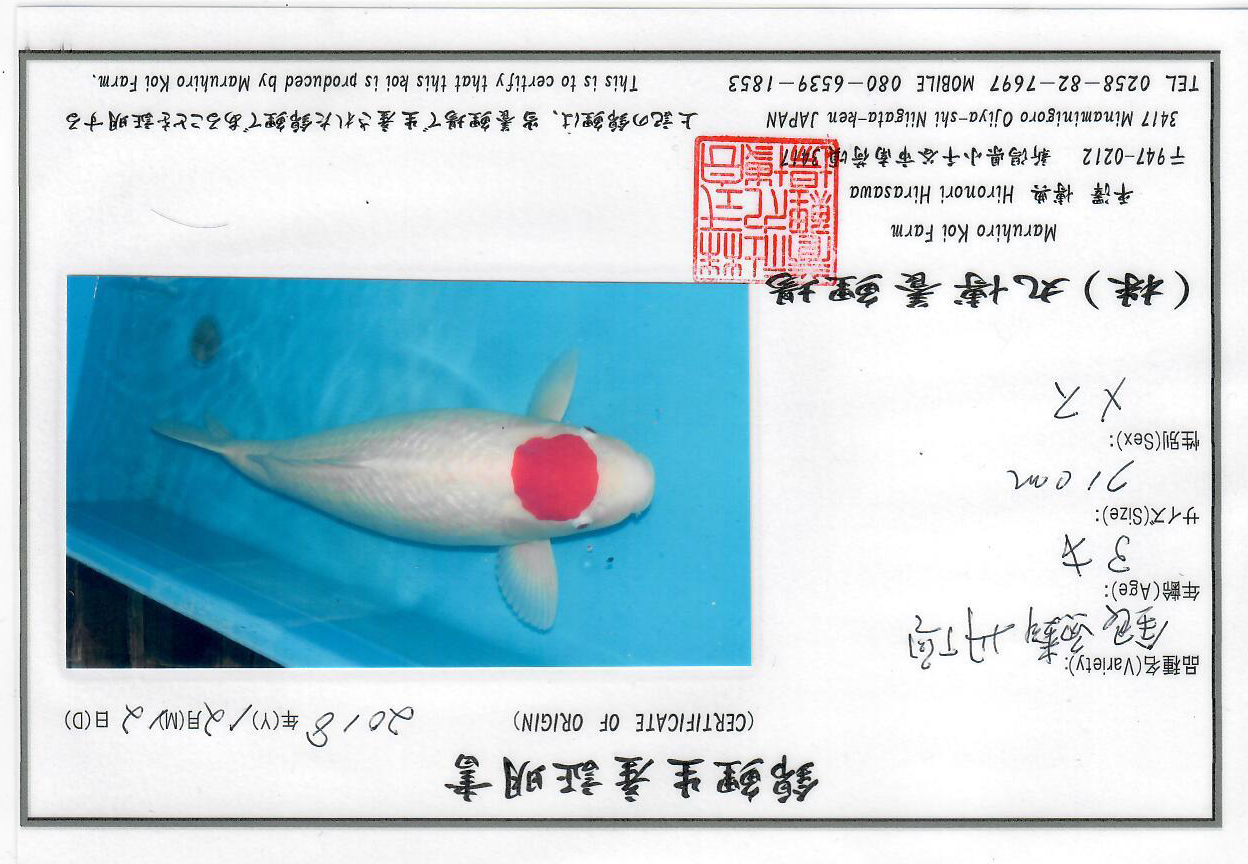 錦鯉生産証明書
(CERTIFICATE OF ORIGIN)
2018年(Y)12月(M)12日(D)
品種名(Variety):
銀鱗丹頂
年齢(Age):
3才
サイズ(Size):
71cm
性別(Sex):
メス
(株)丸博養鯉場
Maruhiro Koi Farm
平澤 博典 Hironori Hirasawa
〒947-0212 新潟県小千谷市南荷頃3417
3417 Minaminigoro Ojiya-shi Niigata-ken JAPAN
TEL 0258-82-7697 MOBILE 080-6539-1853
上記の錦鯉は、当養鯉場で生産された錦鯉であることを証明する
This is to certify that this koi is produced by Maruhiro Koi Farm.